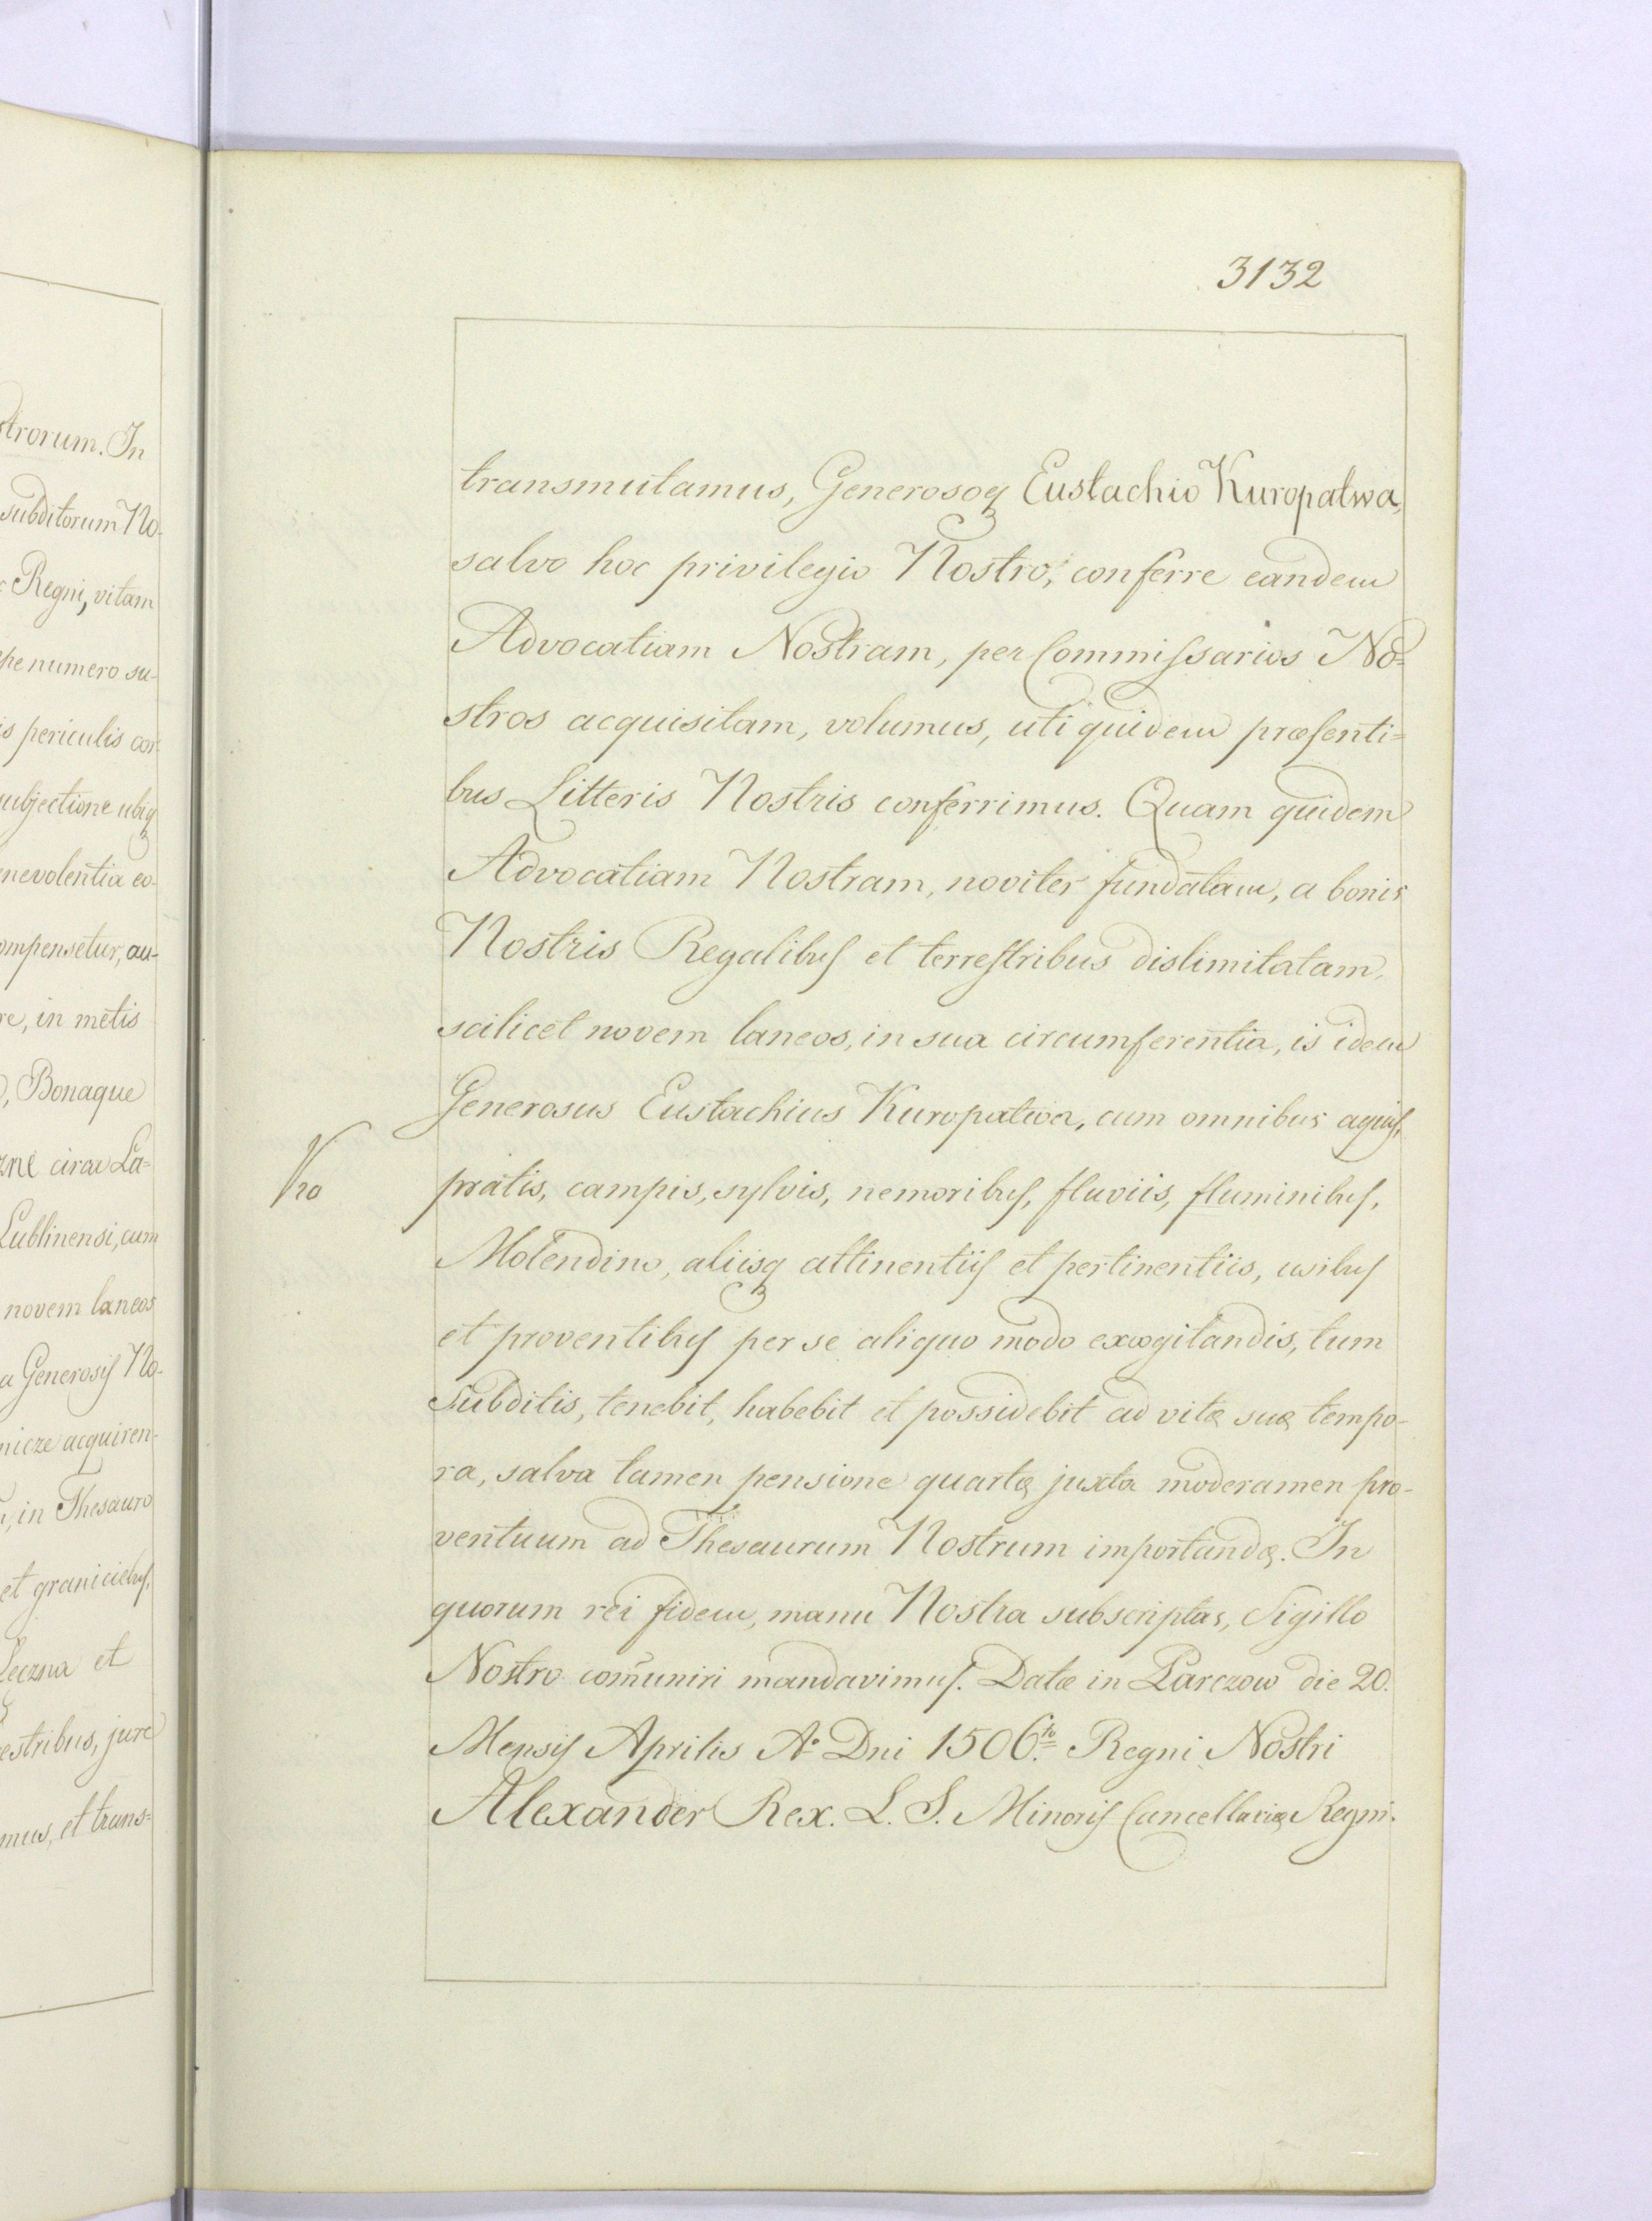 strorum. In
subditorum No-
Regni, vitam
numero su-
is periculis cor
subjectione ubiq
enevolentia eo-
ompensetur, au-
re, in metis
Bonaque
zne circa La=
Lublinensi, cum
novem laneos
a Generosis No-
nicze acquiren-
in Thesauro
et graniciebus,
Leczna et
estribus, jure
mus, et trans=
3132
transmutamus, Generosoq Eustachio Kuropatwa,
salvo hoc privilegio Nostro, conferre eandem
Advocatiam Nostram, per Commissarios No=
stros acquisitam, volumus, uti quidem præsenti=
bus Litteris Nostris conferrimus. Quam quidem
Advocatiam Nostram, noviter fundatam, a bonis
Nostris Regalibus et terrestribus dislimitatam,
scilicet novem laneos, in sua circumferentia, is idem
Generosus Eustachius Kuropatwa, cum omnibus agris,
Vro pratis, campis, sylvis, nemoribus, fluviis, fluminibus,
Molendino, aliisq attinentiis et pertinentiis, usibus
et proventibus per se aliquo modo excogitandis, tum
Subditis, tenebit, habebit et possidebit ad vitæ suæ tempo-
ra, salva tamen pensione quartæ juxta moderamen pro-
ventuum ad Thesaurum Nostrum importandæ. In
quorum rei fidem, manu Nostra subscriptas, Sigillo
Nostro com̄uniri mandavimus. Datæ in Parczow die 20.
Mensis Aprilis Aº Dni 1506.to Regni Nostri
Alexander Rex. L. S. Minoris Cancellariæ Regni.